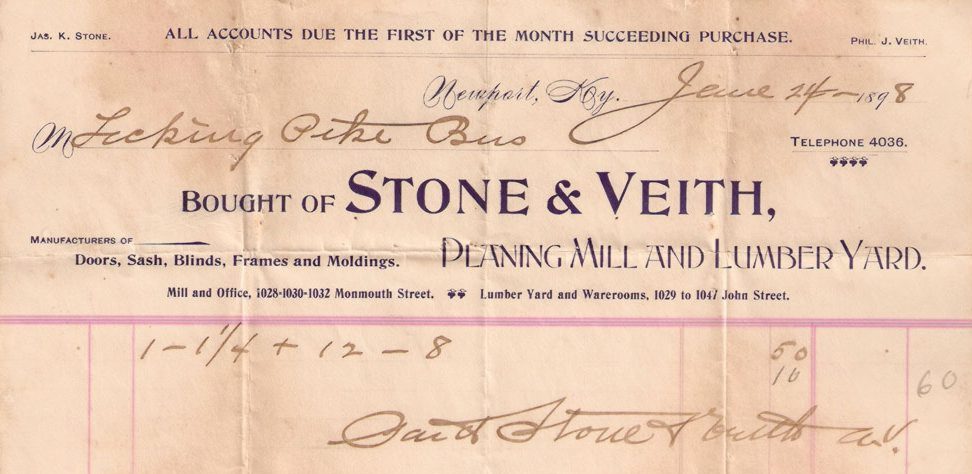 JAS. K. STONE. ALL ACCOUNTS DUE THE FIRST OF THE MONTH SUCCEEDING PURCHASE. PHIL. J. VEITH.
Newport, Ky. June 24 - 1898
M Licking Pike Bus
TELEPHONE 4036.
BOUGHT OF STONE & VEITH,
MANUFACTURERS OF
Doors, Sash, Blinds, Frames and Moldings. PLANING MILL AND LUMBER YARD.
Mill and Office, 1028-1030-1032 Monmouth Street. Lumber Yard and Warerooms, 1029 to 1047 John Street.
1 - 1 1/4 + 12 - 8 50
10 60
Paid Stone & Veith